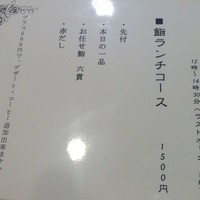 12時〜14時30分(ラストオー
■鮨ランチコース 1500円
・先付
・本日の一品
・お任せ鮨 六貫
・赤だし
プラス500円で、デザート・コーヒー追加出来ます